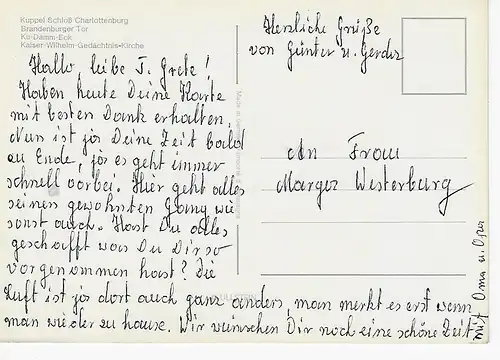 Kuppel Schloß Charlottenburg
Brandenburger Tor
Ku-Damm-Eck
Kaiser-Wilhelm-Gedächtnis-Kirche
Hallo, liebe T. Grete!
Haben heute Deine Karte
mit besten Dank erhalten.
Nun ist ja Deine Zeit bald
zu Ende, ja es geht immer
schnell vorbei. Hier geht alles
seinen gewohnten Gang wie
sonst auch. Hast Du alles
geschafft was Du Dir so
vorgenommen hast? Die
Luft ist ja dort auch ganz anders, man merkt es erst wenn
man wieder zu hause. Wir wünschen Dir noch eine schöne Zeit.
Herzliche Grüße
von Günter u. Gerda
An Frau
Marger Westerburg
mit Oma u. Opa